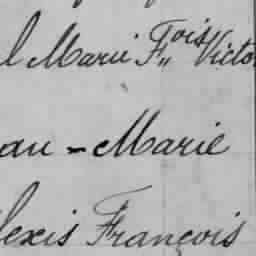 l Marie F,,ois Victo
au-Marie
lexis François